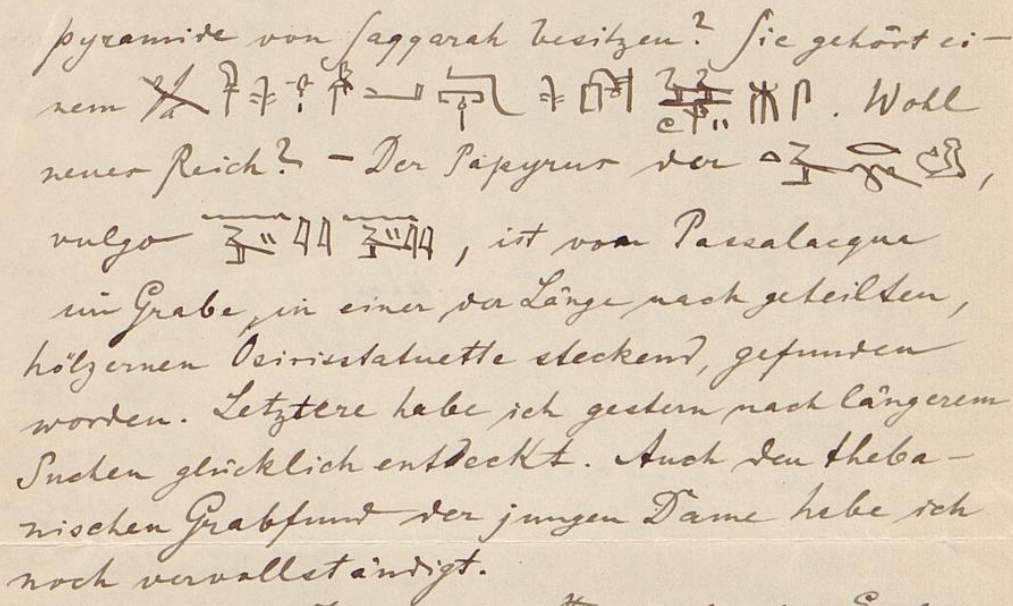 pyramide von Saqqarah besitzen? Sie gehört ei-
nem . Wohl
neues Reich? - Der Papyrus der ,
vulgo , ist von Passalacqua
im Grabe, in einer der Länge nach geteilten,
hölzernen Osirisstatuette steckend, gefunden
worden. Letztere habe ich gestern nach längerem
Suchen glücklich entdeckt. Auch den theba-
nischen Grabfund der jungen Dame habe ich
noch vervollständigt.